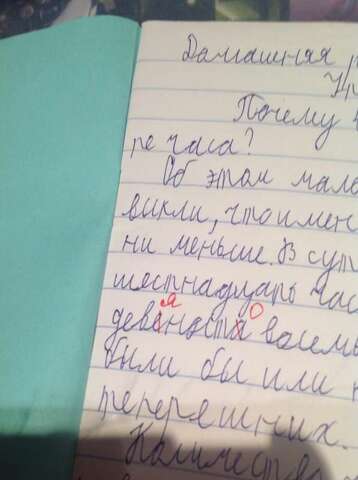 Домашняя р
Упр
Почему ч
ре часа?
Об этом мало
выкли, что имен
ни меньше. В сут
шестнадцать час
я о
девеноста восемь
были бы или н
теперешних.
Количество